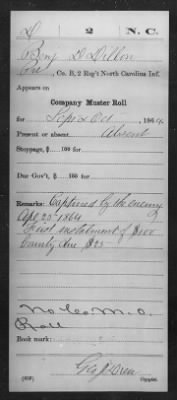 D 2 N. C.
Benj D Dillon
Pvt, Co. B, 2 Reg't North Carolina Inf.
Appears on
Company Muster Roll
for Sept & Oct, 1864.
Present or absent Absent
Stoppage, $ 100 for
Due Gov't, $ 100 for
Remarks: Captured by the enemy
First instalment of $100
Bounty due $25
Roll
Book mark:
Copyist.